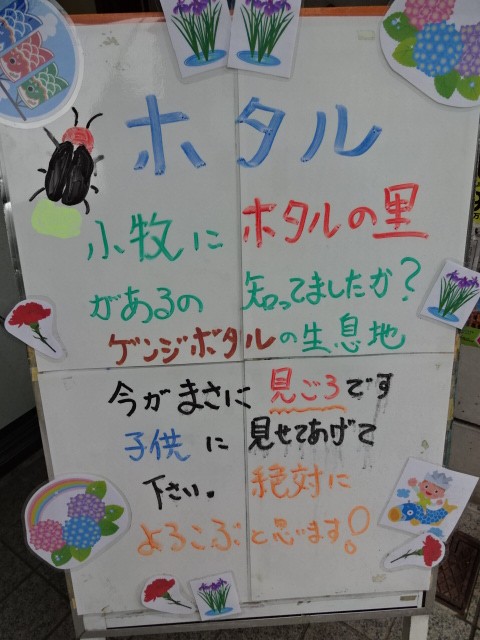 ホタル
小牧にホタルの里
があるの知ってましたか?
ゲンジボタルの生息地
今がまさに見ごろです
子供に見せてあげて
下さい。絶対に
よろこぶと思います!